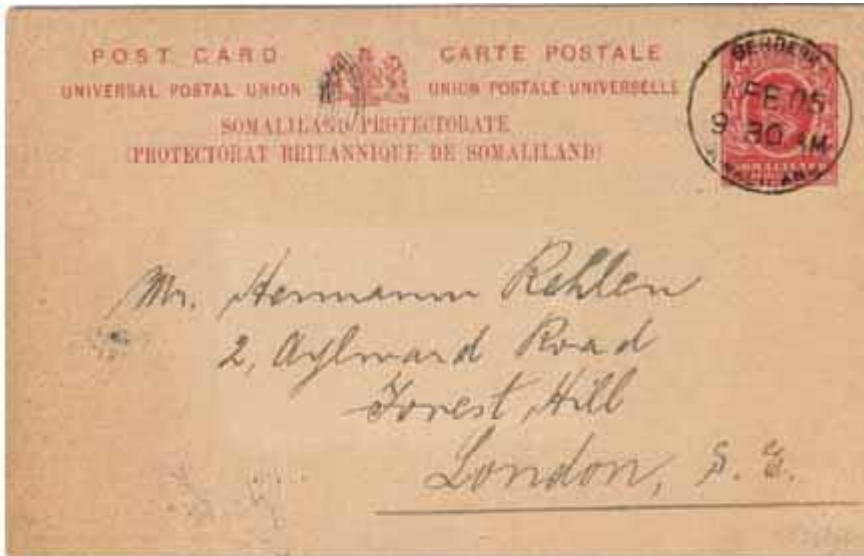 POST CARD CARTE POSTALE
UNIVERSAL POSTAL UNION UNION POSTALE UNIVERSELLE
SOMALILAND PROTECTORATE
(PROTECTORAT BRITANNIQUE DE SOMALILAND)
BERBERA
1 FE 05
9 30 AM
SOMALILAND
Mr. Hermann Rehlen
2, Aylward Road
Forest Hill
London, S. E.